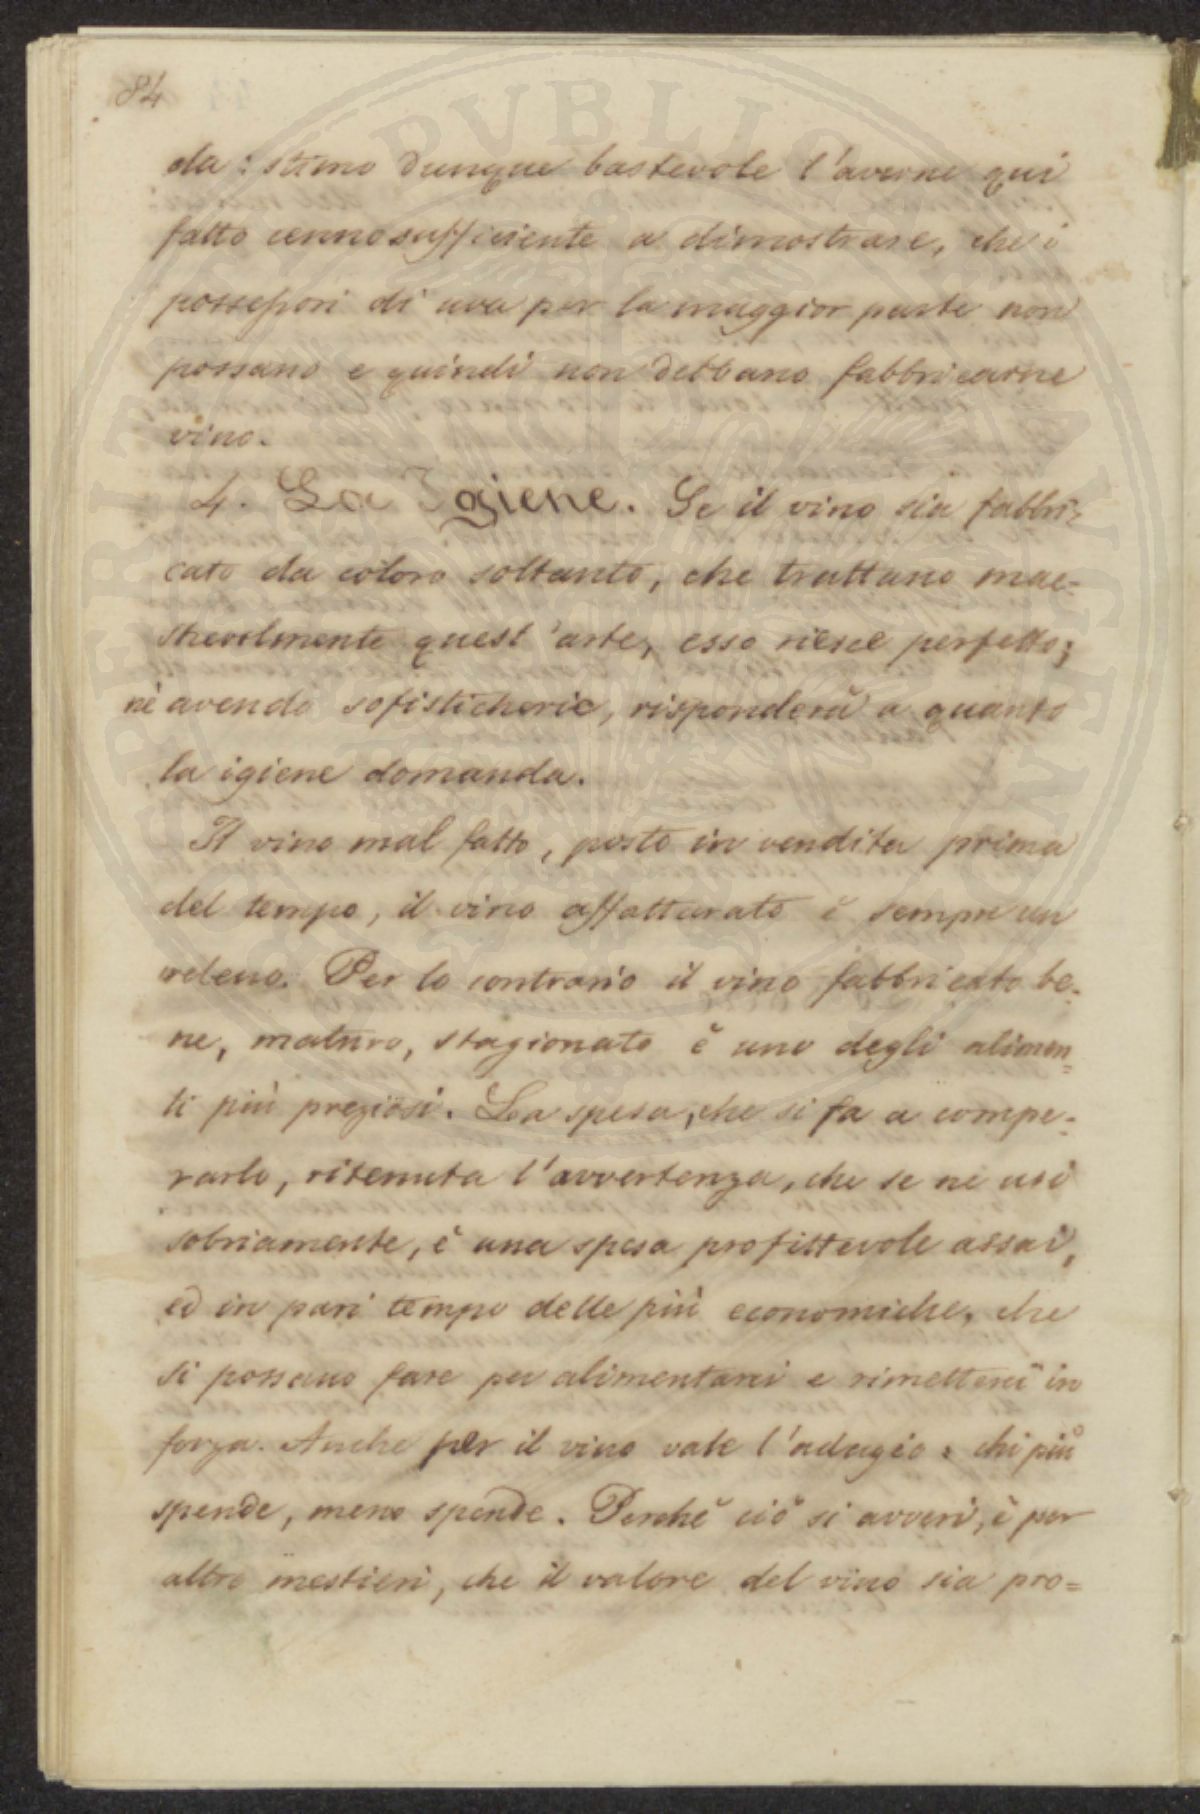 84
da: stimo dunque bastevole l'averne qui
fatto cenno sufficiente a dimostrare, che i
possessori di uva per la maggior parte non
possano e quindi non debbano fabbricarne
vino.
4. La Igiene. Se il vino sia fabbri-
cato da coloro soltanto, che trattano mae-
strevolmente quest'arte, esso riesce perfetto;
nè avendo sofisticherie, risponderà a quanto
la igiene domanda.
Il vino mal fatto, posto in vendita prima
del tempo, il vino affatturato è sempre un
veleno. Per lo contrario il vino fabbricato be-
ne, maturo, stagionato è uno degli alimen=
ti più preziosi. La spesa, che si fa a compe-
rarlo, ritenuta l'avvertenza, che se ne usi
sobriamente, è una spesa profittevole assai,
ed in pari tempo delle più economiche, che
si possano fare per alimentarci e rimetterci in
forza. Anche per il vino vale l'adagio: chi più
spende, meno spende. Perchè ciò si avveri, è per
altro mestieri, che il valore del vino sia pro=